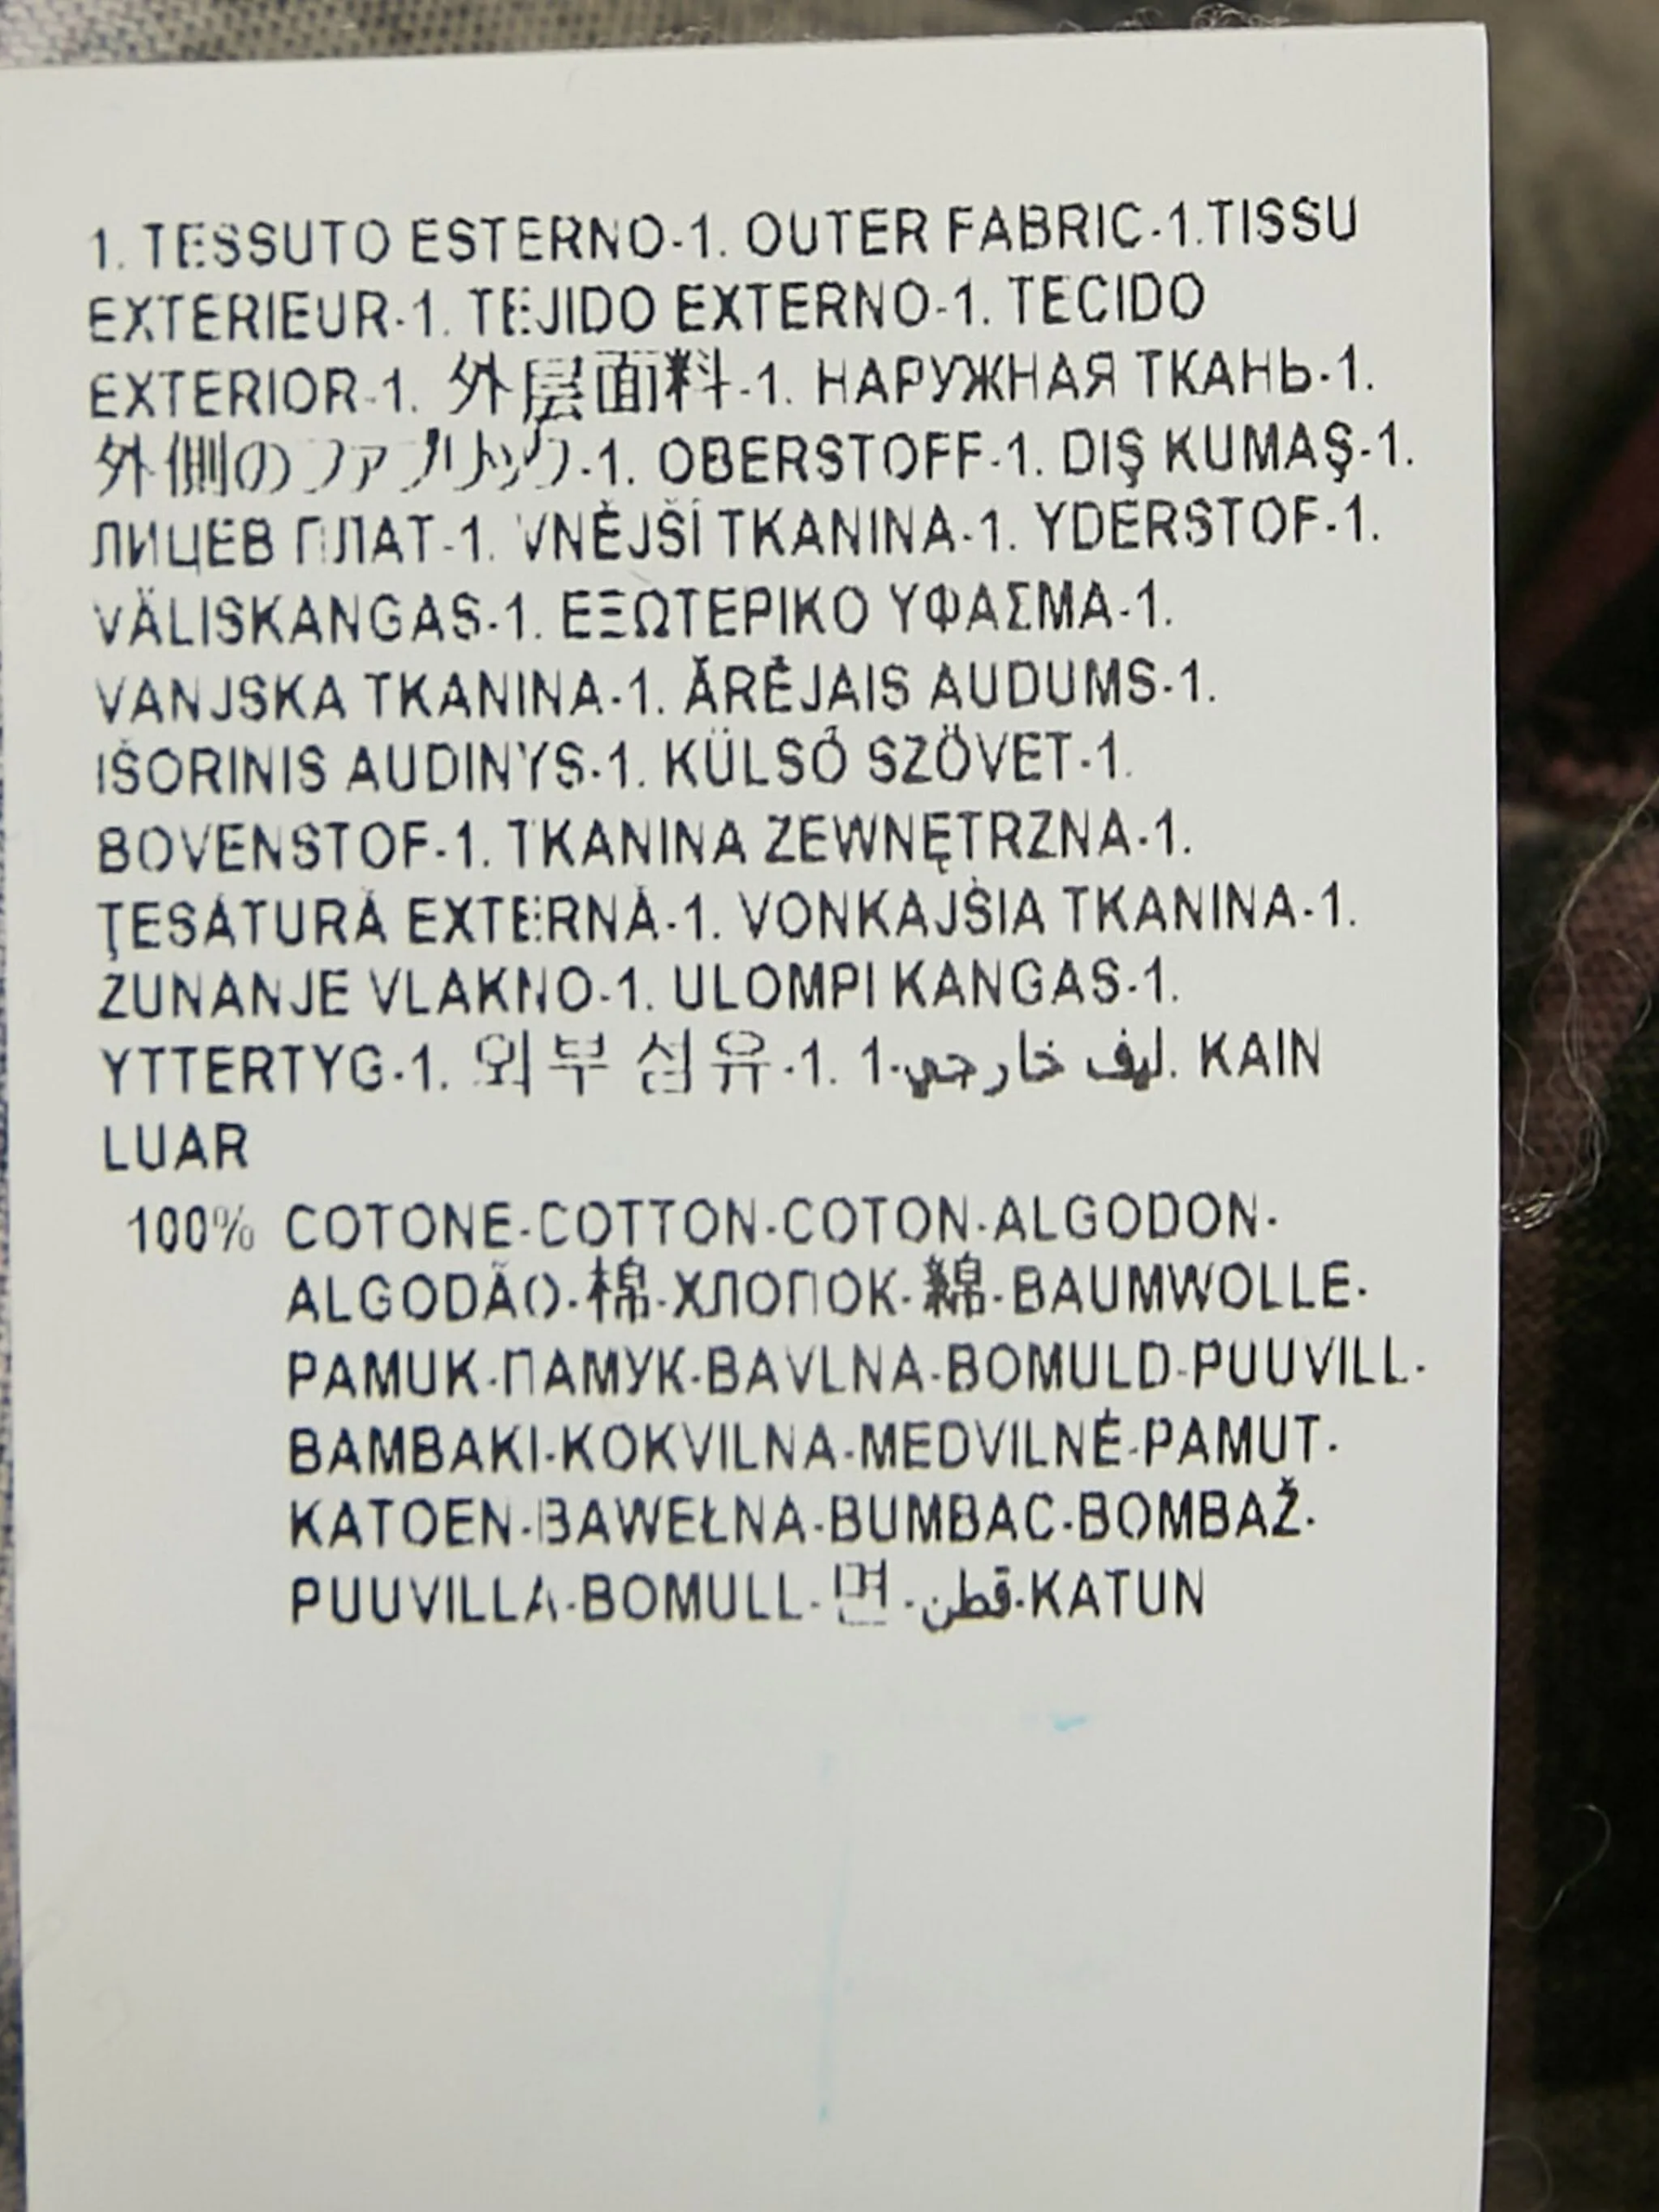 1. TESSUTO ESTERNO-1. OUTER FABRIC-1.TISSU
EXTERIEUR-1. TEJIDO EXTERNO-1. TECIDO
EXTERIOR-1. 外层面料-1. НАРУЖНАЯ ТКАНЬ-1.
外側のファブリック-1. OBERSTOFF-1. DIŞ KUMAŞ-1.
ЛИЦЕВ ПЛАТ-1. VNĚJŠÍ TKANINA-1. YDERSTOF-1.
VÄLISKANGAS-1. ΕΞΩΤΕΡΙΚΟ ΥΦΑΣΜΑ-1.
VANJSKA TKANINA-1. ĀRĒJAIS AUDUMS-1.
IŠORINIS AUDINYS-1. KÜLSŐ SZÖVET-1.
BOVENSTOF-1. TKANINA ZEWNĘTRZNA-1.
ŢESĂTURĂ EXTERNĂ-1. VONKAJŠIA TKANINA-1.
ZUNANJE VLAKNO-1. ULOMPI KANGAS-1.
YTTERTYG-1. 외부 섬유-1. ليف خارجي-1. KAIN
LUAR
100% COTONE-COTTON-COTON-ALGODON-
ALGODÃO-棉-ХЛОПОК-綿-BAUMWOLLE-
PAMUK-ПАМУК-BAVLNA-BOMULD-PUUVILL-
BAMBAKI-KOKVILNA-MEDVILNĖ-PAMUT-
KATOEN-BAWEŁNA-BUMBAC-BOMBAŽ-
PUUVILLA-BOMULL-면-قطن-KATUN